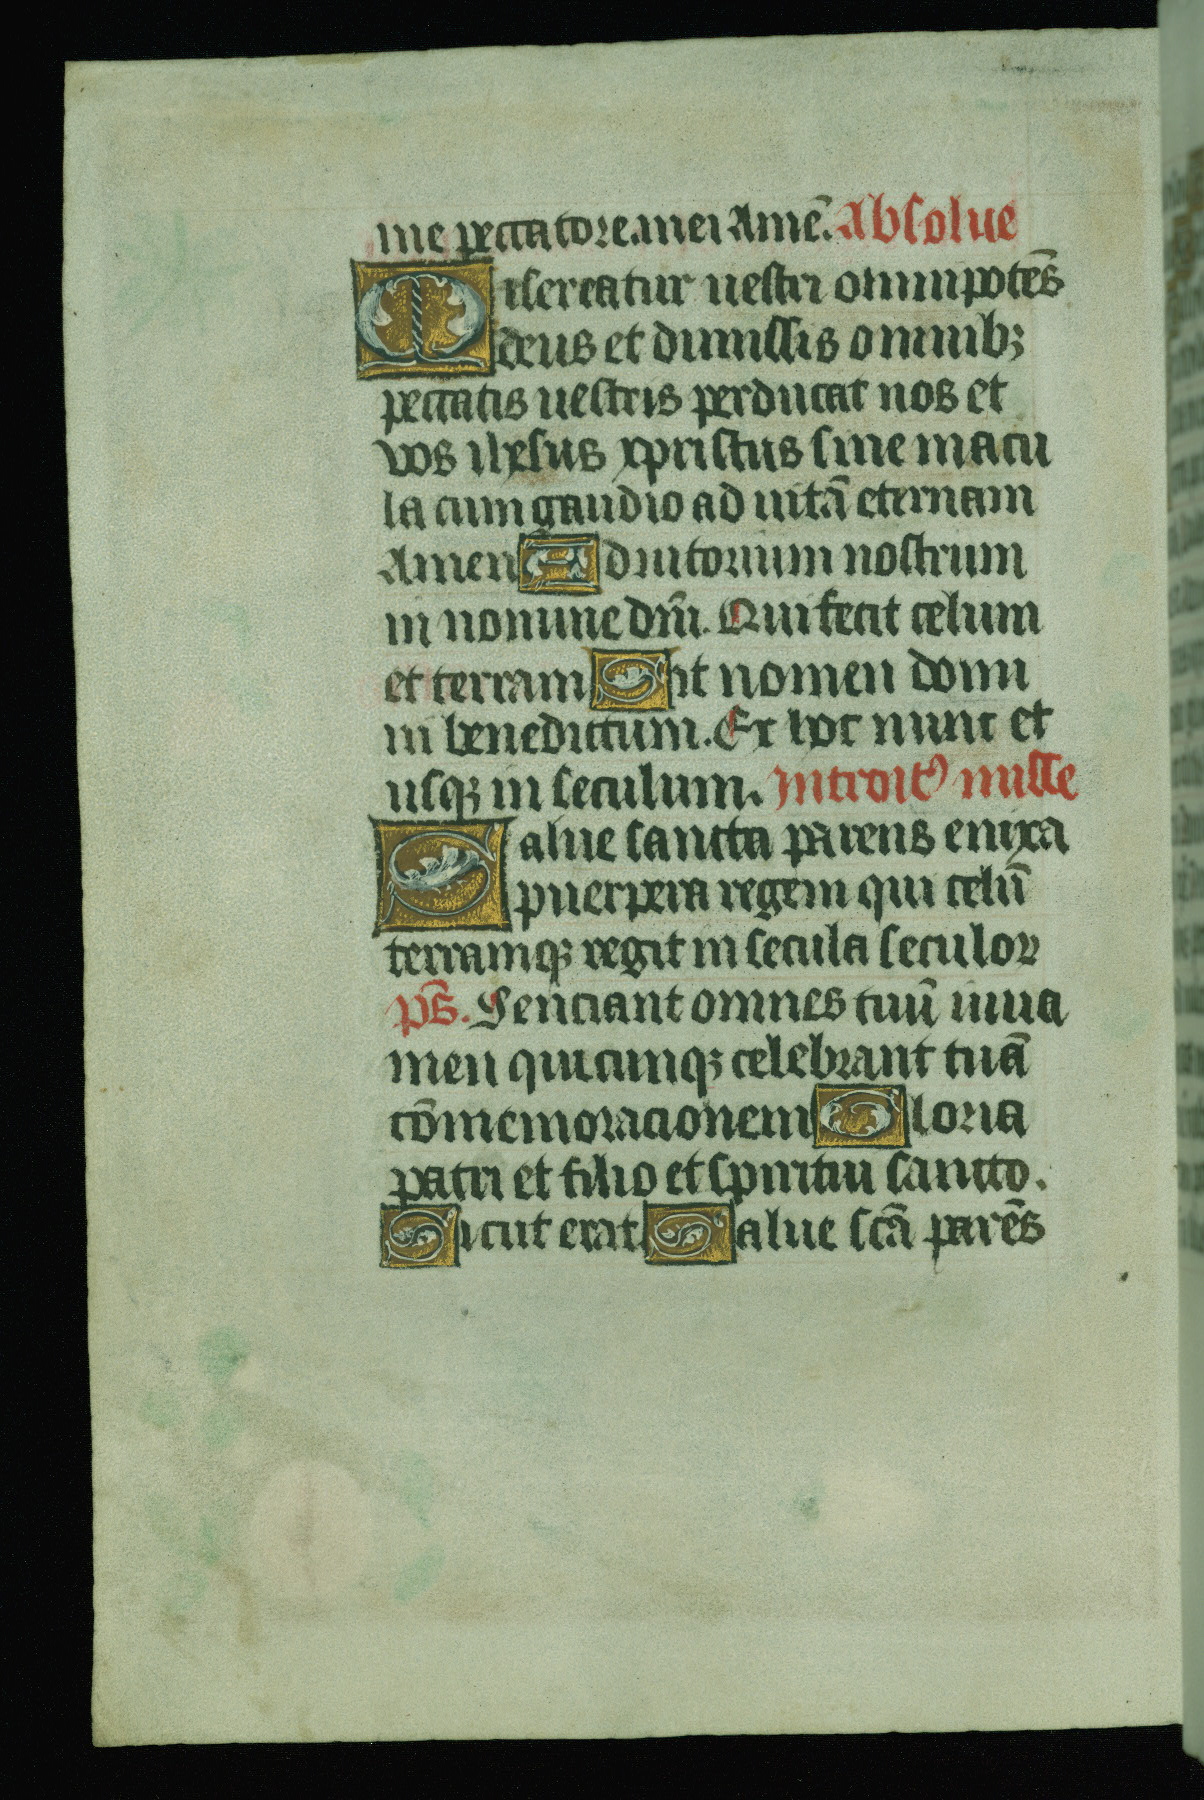 me peccatore.mei Amē. Absolue
Misereatur uestri omnipotēs
deus et dimissis omnibꝫ
peccatis uestris perducat nos et
vos ihesus xpristus sine macu
la cum gaudio ad uitā eternam
Amen Adiutorium nostrum
in nomine dm̄i. Qui fecit celum
et terram Sit nomen domi
ni benedictum. Ex hoc nunc et
usqꝫ in seculum. Introitꝰ misse
Salue sancta parens enixa
puerpera regem qui celū
terramqꝫ regit in secula seculoꝝ
pš. Senciant omnes tuū iuua
men quicunqꝫ celebrant tuā
cōmemoracionem Gloria
patri et filio et spiritui sancto.
Sicut erat Salue scā parēs